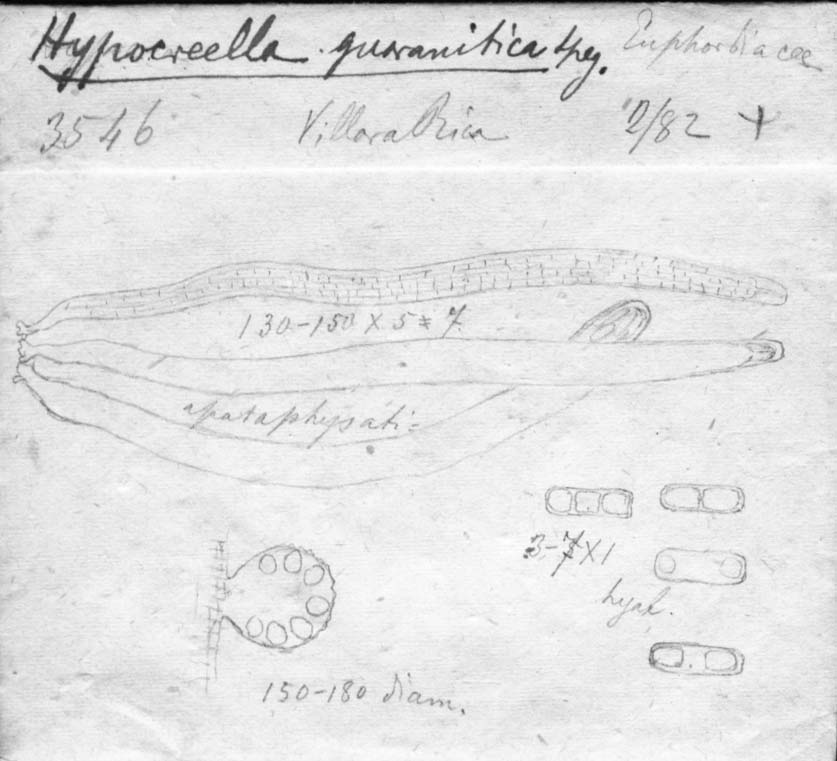 Hypocreella guaranitica Speg. Euphorbiacee
3546 Villara Rica 2/82 +
130-150 X 5 = 7
aparaphysati-
3-7 X 1
hyal.
150-180 diam.